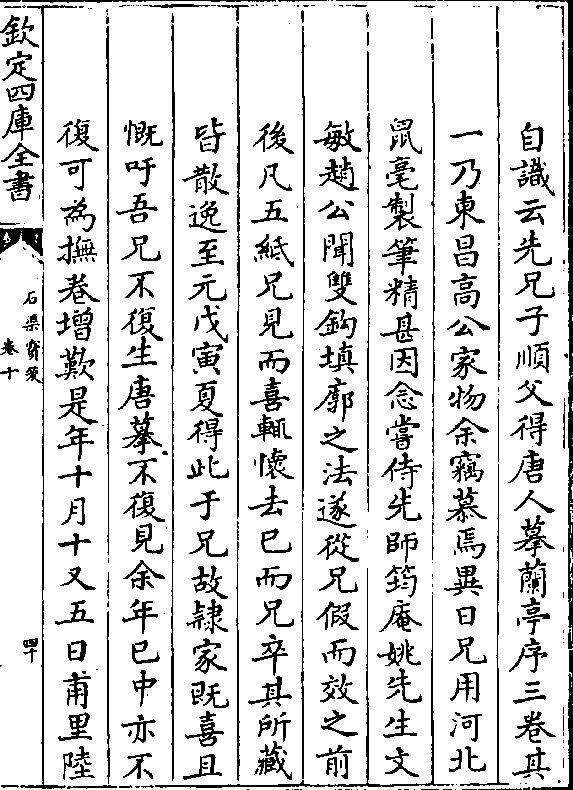 自識云先兄子順父得唐人摹蘭亭序三卷其
一乃東昌高公家物余竊慕焉異日兄用河北
鼠毫製筆精甚因念嘗侍先師筠庵姚先生文
敏趙公聞雙鈎填廓之法遂從兄假而效之前
後凡五紙兄見而喜輒懷去已而兄卒其所藏
皆散逸至元戊寅夏得此于兄故隷家既喜且
慨吁吾兄不復生唐摹不復見余年已中亦不
復可為撫卷增歎是年十月十又五日甫里陸
欽定四庫全書
石渠寳笈
卷十
四十